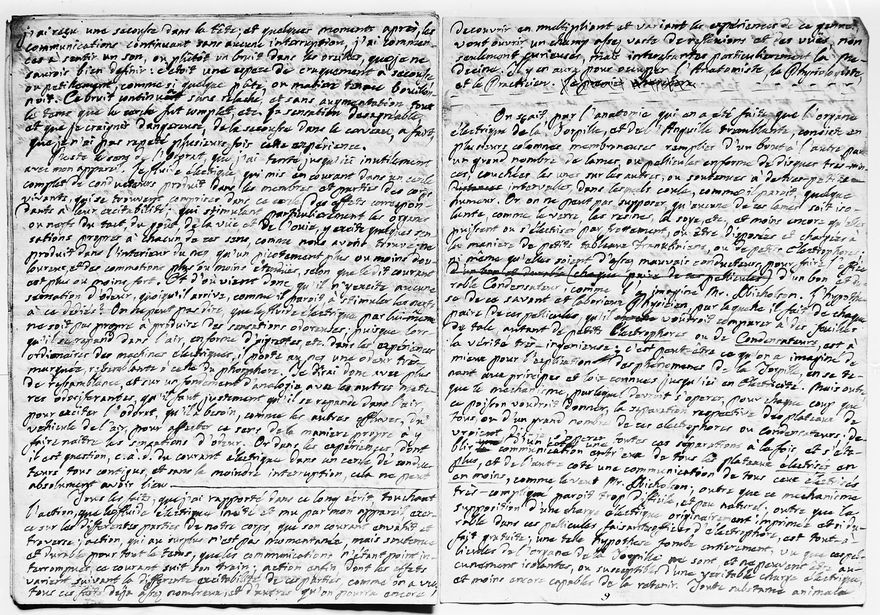 j'ai reçu une secousse dans la tête, et quelques moments après, les
communications continuant sans aucune interruption, j'ai commen-
cé à sentir un son, ou plûtôt un bruit dans les oreilles, que je ne
saurois bien definir: c'étoit une espece de craquement à secousses,
ou petillement, comme si quelque pâte, ou matiere tenace bouillon-
noit. Ce bruit continuoit sans relache, et sans augmentation tout
le tems que le cercle fut complet, etc. La sensation desagreable,
et que je craignis dangereuse, de la secousse dans le cerveau, a fait,
que je n'ai pas repeté plusieurs fois cette expérience.
Reste le sens de l'Odorat, que j'ai tenté jusqu'ici inutilement
avec mon appareil. Le fluide électrique, qui mis en courant dans un cercle
complet de conducteurs produit dans les membres et parties des corps
vivants, qui se trouvent comprises dans ce cercle des effets correspon-
dants à leur excitabilité; qui stimulant particulierement les organes
ou nerfs du tact, du goût, de la vûe et de l'ouie, y excite quelques sen-
sations propres à chacun de ces sens, comme nous avons trouvé, ne
produit dans l'interieur du nez qu'un picotement plus ou moins dou-
loureux, et des commotions plus ou moins étendues, selon que le dit courant
est plus ou moins fort. Et d'ou vient donc qu'il n'y excite aucune
sensation d'odeur, quoiqu'il arrive, comme il paroit, à stimuler les nerfs
de ce sens? On ne peut pas dire, que le fluide électrique par lui même
ne soit pas propre à produire des sensations odoreuses; puisque lors-
qu'il se repand dans l'air, en forme d'aigrettes, etc. dans les expériences
ordinaires des machines électriques, il porte au nez une odeur très
marquée, ressemblante à celle du phosphore. Je dirai donc avec plus
de ressemblance, et sur un fondement d'analogie avec les autres matie-
res odoriferantes, qu'il faut justement qu'il se repande dans l'air
pour exciter l'odorat, qu'il a besoin, comme les autres effluves, du
vehicule de l'air pour affecter ce sens de la maniere propre à y
faire naître les sensations d'odeur. Or dans les expériences dont
il est question, c. à. d. du courant électrique dans un cercle de conduc-
teurs tous contigus, et sans la moindre interruption, cela ne peut
absolument avoir lieu.
Tous les faits, que j'ai rapporté dans ce long écrit, touchant
l'action, que le fluide électrique incité et mu par mon appareil exer-
ce sur les differentes parties de notre corps, que son courant envahit et
traverse; action, qui au surplus n'est pas momentanée, mais soutenue
et durable pour tout le tems, que les communications n'étant point in-
terrompues, ce courant suit son train; action enfin dont les effets
varient suivant la differente excitabilité de ces parties, comme on a vû,
tous ces faits déjà assez nombreux, et d'autres qu'on pourra encore
decouvrir en multipliant et variant les expériences de ce genre,
vont ouvrir un champ assez vaste de reflexions, et des vûes, non
seulement curieuses, mais interessantes particulierement la Me-
decine. Il y en aura pour occuper l'Anatomiste, le Physiologiste
et le Practicien.
On sçait, par l'anatomie qui en a été faite, que l'organe
électrique de la Torpille, et de l'Anguille tremblante, consiste en
plusieurs colonnes membraneuses remplies d'un bout à l'autre par
un grand nombre de lames, ou pellicules en forme de disques très-min-
ces, couchées les unes sur les autres, ou soutenues à de très petites
intervalles, dans lesquels coule, comme il paroit, quelque
humeur. Or on ne peut pas supposer qu'aucune de ces lames soit iso-
lante, comme le verre, les resines, la soye, etc. et moins encore qu'elles
puissent ou s'électriser par frottement, ou être disposées et chargées à
la maniere de petits tableaux Frankliniens, ou de petits Electrophores;
ni même qu'elles soient d'assez mauvais conducteurs pour faire l'office
d'un bon et du-
rable Condensateur, comme l'a imaginé Mr. Nicholson. L'hypothe-
se de ce savant et laborieux Physicien par laquelle il fait de chaque
paire de ces pellicules, qu'il voudroit comparer à des feuilles
du talc, autant de petits Electrophores ou de Condensateurs, est à
la vérité très ingenieuse; c'est peut-être ce qu'on a imaginé de
mieux pour l'explication des phenomenes de la Torpille, en se te-
nant aux principes et loix connues jusqu'ici en électricité. Mais outre
que le mechanisme par lequel devroit s'operer, pour chaque coup que
ce poisson voudroit donner, la separation respective des plateaux de
tous, ou d'un grand nombre de ces électrophores ou condensateurs, de-
vroient d'un coté toutes ces séparations à la fois, et s'éta-
blir communication entr'eux de tous les plateaux électrisés en
plus, et de l'autre coté une communication de tous ceux électrisés
en moins, comme le veut Mr. Nicholson; outre que ce mechanisme
très-compliqué paroit trop difficile, et peu naturel; outre que la
supposition d'une charge électrique originairement imprimée et si du-
rable dans ces pellicules, faisant office d'électrophore, est toute-à-
fait gratuite; une telle hypothese tombe entierement, vu que ces pel-
licules de l'organe de la Torpille ne sont, et ne peuvent être au-
cunement isolantes, ou susceptibles d'une veritable charge électrique,
et moins encore capables de la retenir. Toute substance animale
9